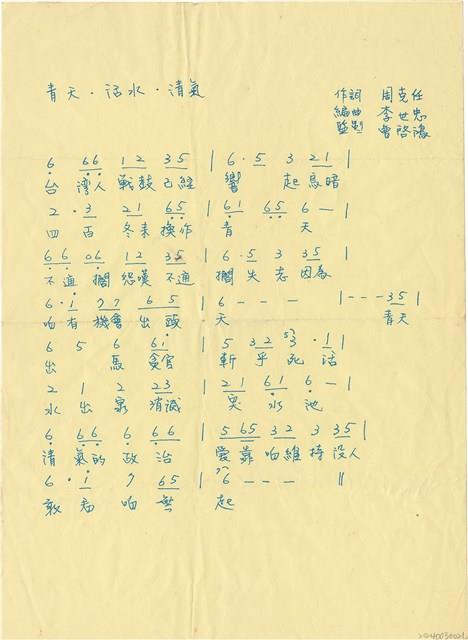 青天.活水.清氣
作詞 周克任
編曲 李世忠
監製 曾啓
6 66 12 35 | 6.5 3 21 |
台 灣人 戰鼓 已經 響 起 烏暗
2.3 21 65 | 61 65 6 — |
四百 冬來 換作 青 天
66 06 12 35 | 6.5 3 35 |
不通 擱 怨嘆 不通 擱失志 因為
6.1 77 65 | 6 - - - | - - - 35 |
咱有 機會 出頭 天 青天
6 5 6 61 | 5 32 3.1 |
出 馬 貪官 斬乎死 活
2 1 2 23 | 21 61 6 — |
水出泉 消滅 臭水池
6 66 6 66 | 5 65 32 3 35 |
清 氣的 政治 愛靠咱維持 沒人
6.1 7 65 | 6 - - - ||
敢看咱無 起